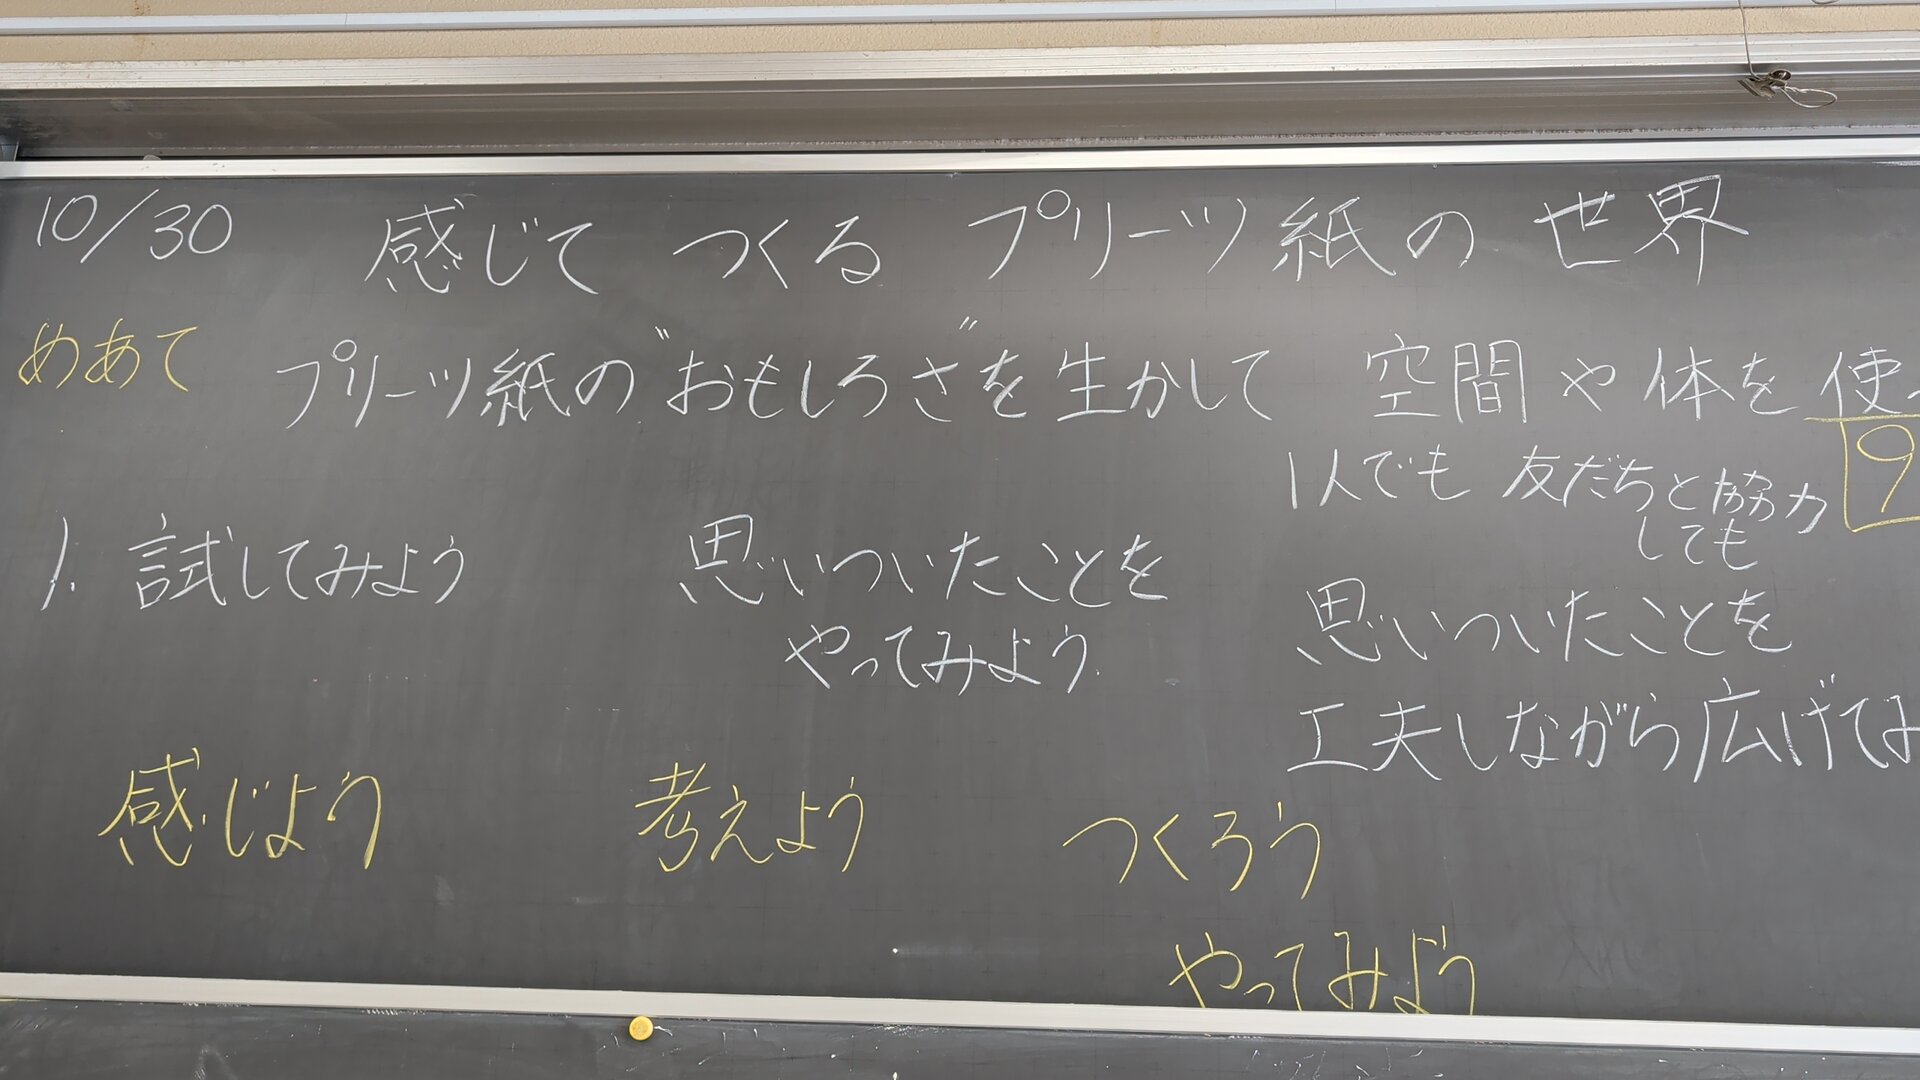 10/30
感じて つくる プリーツ紙の 世界
めあて
プリーツ紙の"おもしろさ"を生かして 空間や体を使
9
1人でも 友だちと協力
しても
1. 試してみよう
思いついたことを
やってみよう
思いついたことを
工夫しながら広げてみ
感じよう
考えよう
つくろう
やってみよう